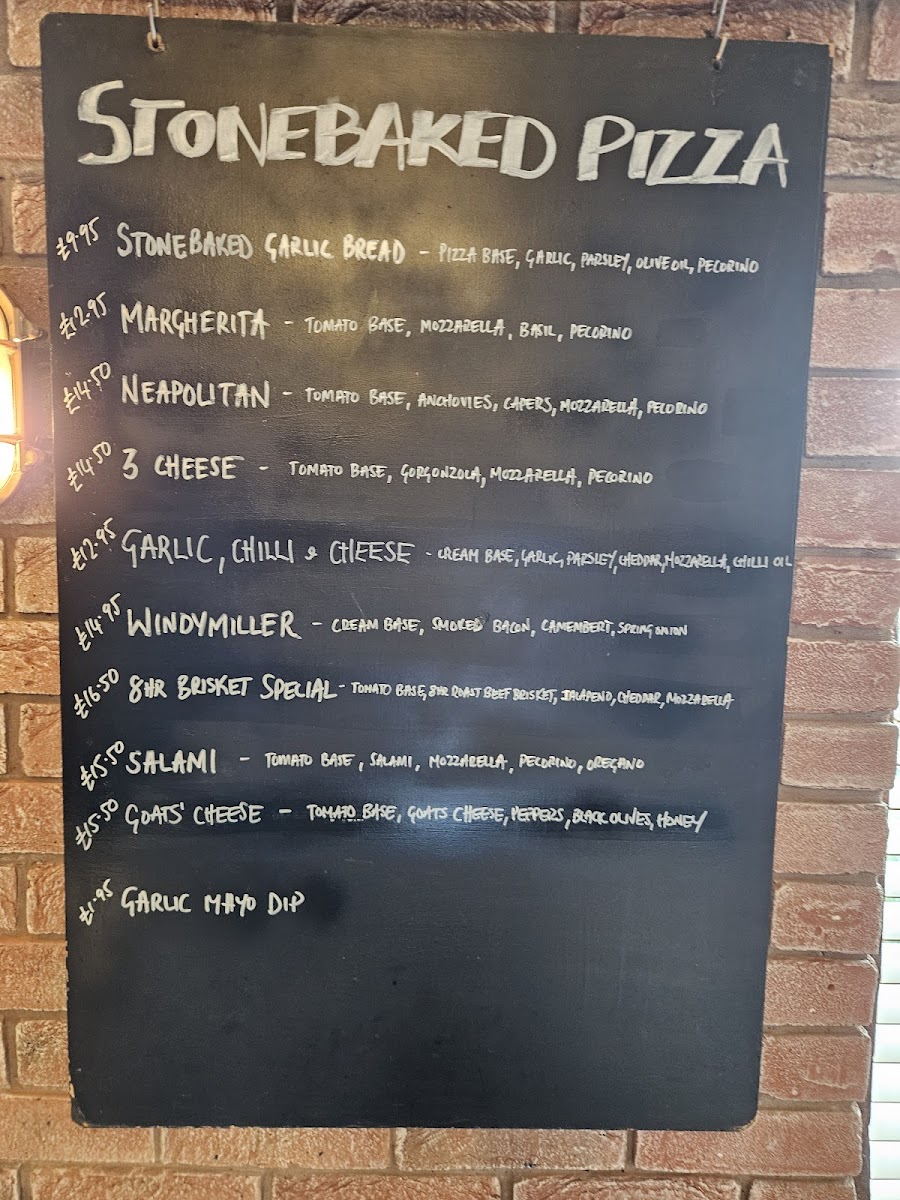 STONEBAKED PIZZA
£9.95 STONEBAKED GARLIC BREAD - PIZZA BASE, GARLIC, PARSLEY, OLIVE OIL, PECORINO
£12.95 MARGHERITA - TOMATO BASE, MOZZARELLA, BASIL, PECORINO
£14.50 NEAPOLITAN - TOMATO BASE, ANCHOVIES, CAPERS, MOZZARELLA, PECORINO
£14.50 3 CHEESE - TOMATO BASE, GORGONZOLA, MOZZARELLA, PECORINO
£12.95 GARLIC, CHILLI & CHEESE - CREAM BASE, GARLIC, PARSLEY, CHEDDAR, MOZZARELLA, CHILLI OIL
£14.95 WINDYMILLER - CREAM BASE, SMOKED BACON, CAMEMBERT, SPRING ONION
£16.50 8HR BRISKET SPECIAL - TOMATO BASE, 8HR ROAST BEEF BRISKET, JALAPENO, CHEDDAR, MOZZARELLA
£15.50 SALAMI - TOMATO BASE, SALAMI, MOZZARELLA, PECORINO, OREGANO
£15.50 GOATS' CHEESE - TOMATO BASE, GOATS CHEESE, PEPPERS, BLACK OLIVES, HONEY
£1.95 GARLIC MAYO DIP